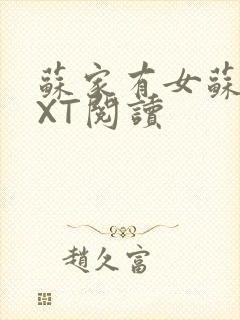 蘇家有女蘇
XT閱讀
趙久富